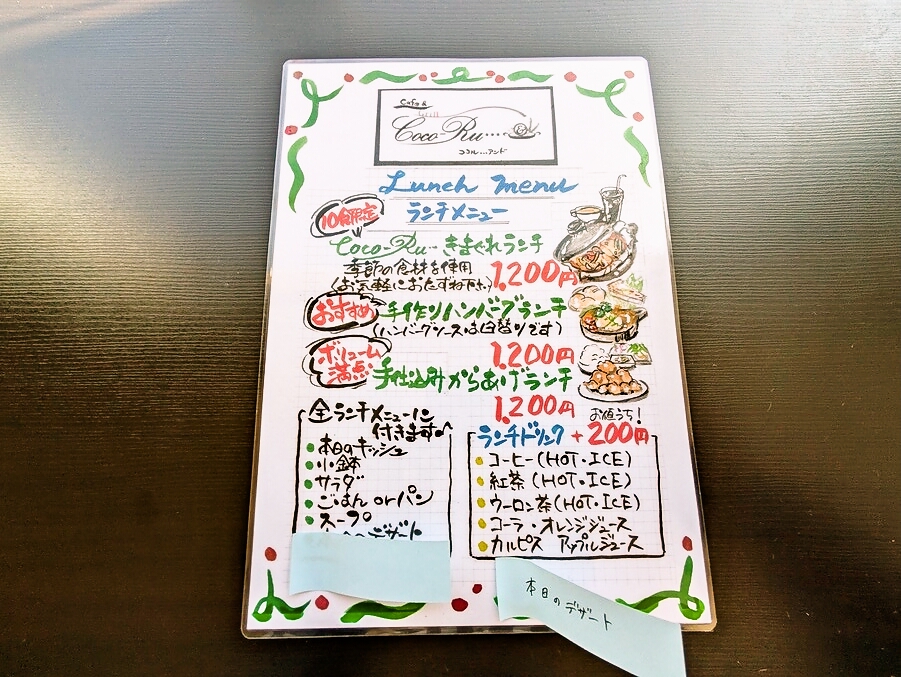 Cafe &
Coco-Ru....
ココル...アンド
Lunch menu
ランチメニュー
10食限定
Coco-Ru.. きまぐれランチ
季節の食材を使用
(お気軽におたずね下さい) 1,200円
おすすめ 手作りハンバーグランチ
(ハンバーグソースは日替りです)
1,200円
ボリューム
満点 手仕込みからあげランチ
1,200円
全ランチメニューに
付きます
本日のキッシュ
小鉢
サラダ
ごはん orパン
スープ
デザート
お値うち!
ランチドリンク +200円
コーヒー(HOT・ICE)
紅茶(HOT・ICE)
ウーロン茶(HOT・ICE)
コーラ・オレンジジュース
カルピス アップルジュース
本日のデザート